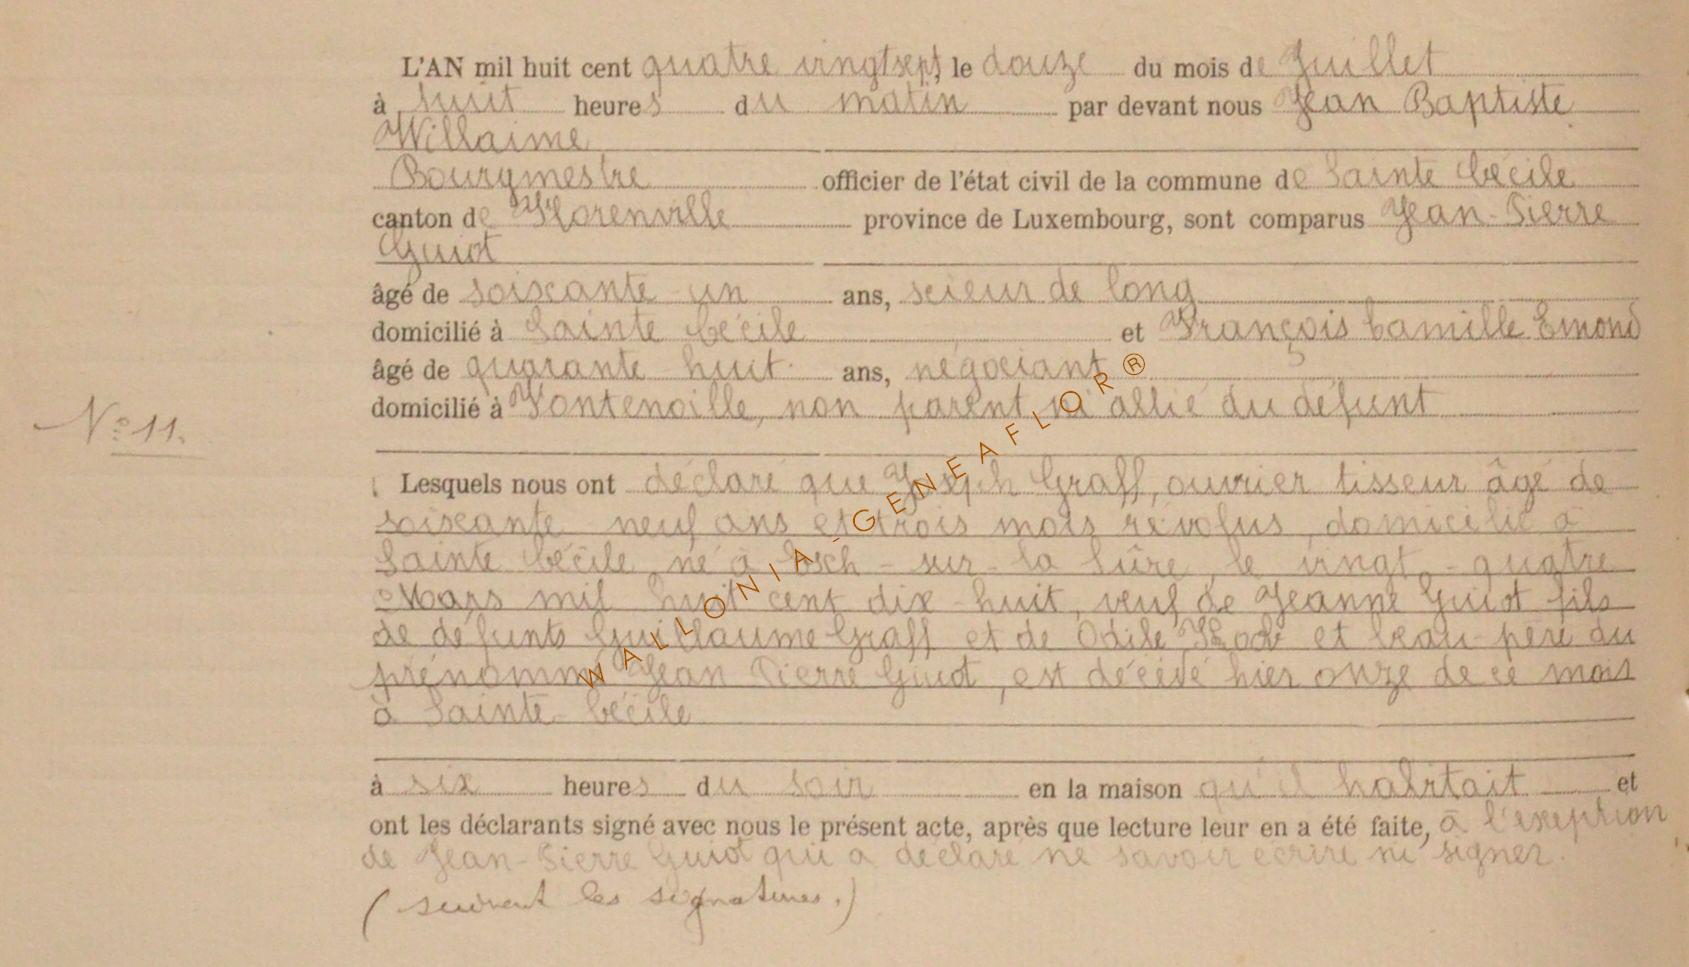 L'AN mil huit cent quatre vingt sept, le douze du mois de Juillet
à huit heures du matin par devant nous Jean Baptiste
Willaime
Bourgmestre officier de l'état civil de la commune de Sainte Cécile
canton de Florenville province de Luxembourg, sont comparus Jean-Pierre
Guiot
âgé de soixante un ans, scieur de long
domicilié à Sainte Cécile et François Camille Emond
âgé de quarante huit ans, négociant
domicilié à Fontenoille, non parent ni allié du défunt
N° 11.
Lesquels nous ont déclaré que Joseph Graff, ouvrier tisseur âgé de
soixante neuf ans et trois mois révolus, domicilié à
Sainte Cécile, né à Esch-sur-la Sûre, le vingt-quatre
Mars mil huit cent dix-huit, veuf de Jeanne Guiot fils
de défunts Guillaume Graff et de Odile et beau-père du
prénommé Jean Pierre Guiot, est décédé hier onze de ce mois
à Sainte-Cécile
à six heures du soir en la maison qu'il habitait et
ont les déclarants signé avec nous le présent acte, après que lecture leur en a été faite, à l'exeption
de Jean-Pierre Guiot qui a déclaré ne savoir écrire ni signer.
(suivent les signatures.)
WALLONIA-GENEAFLOR®